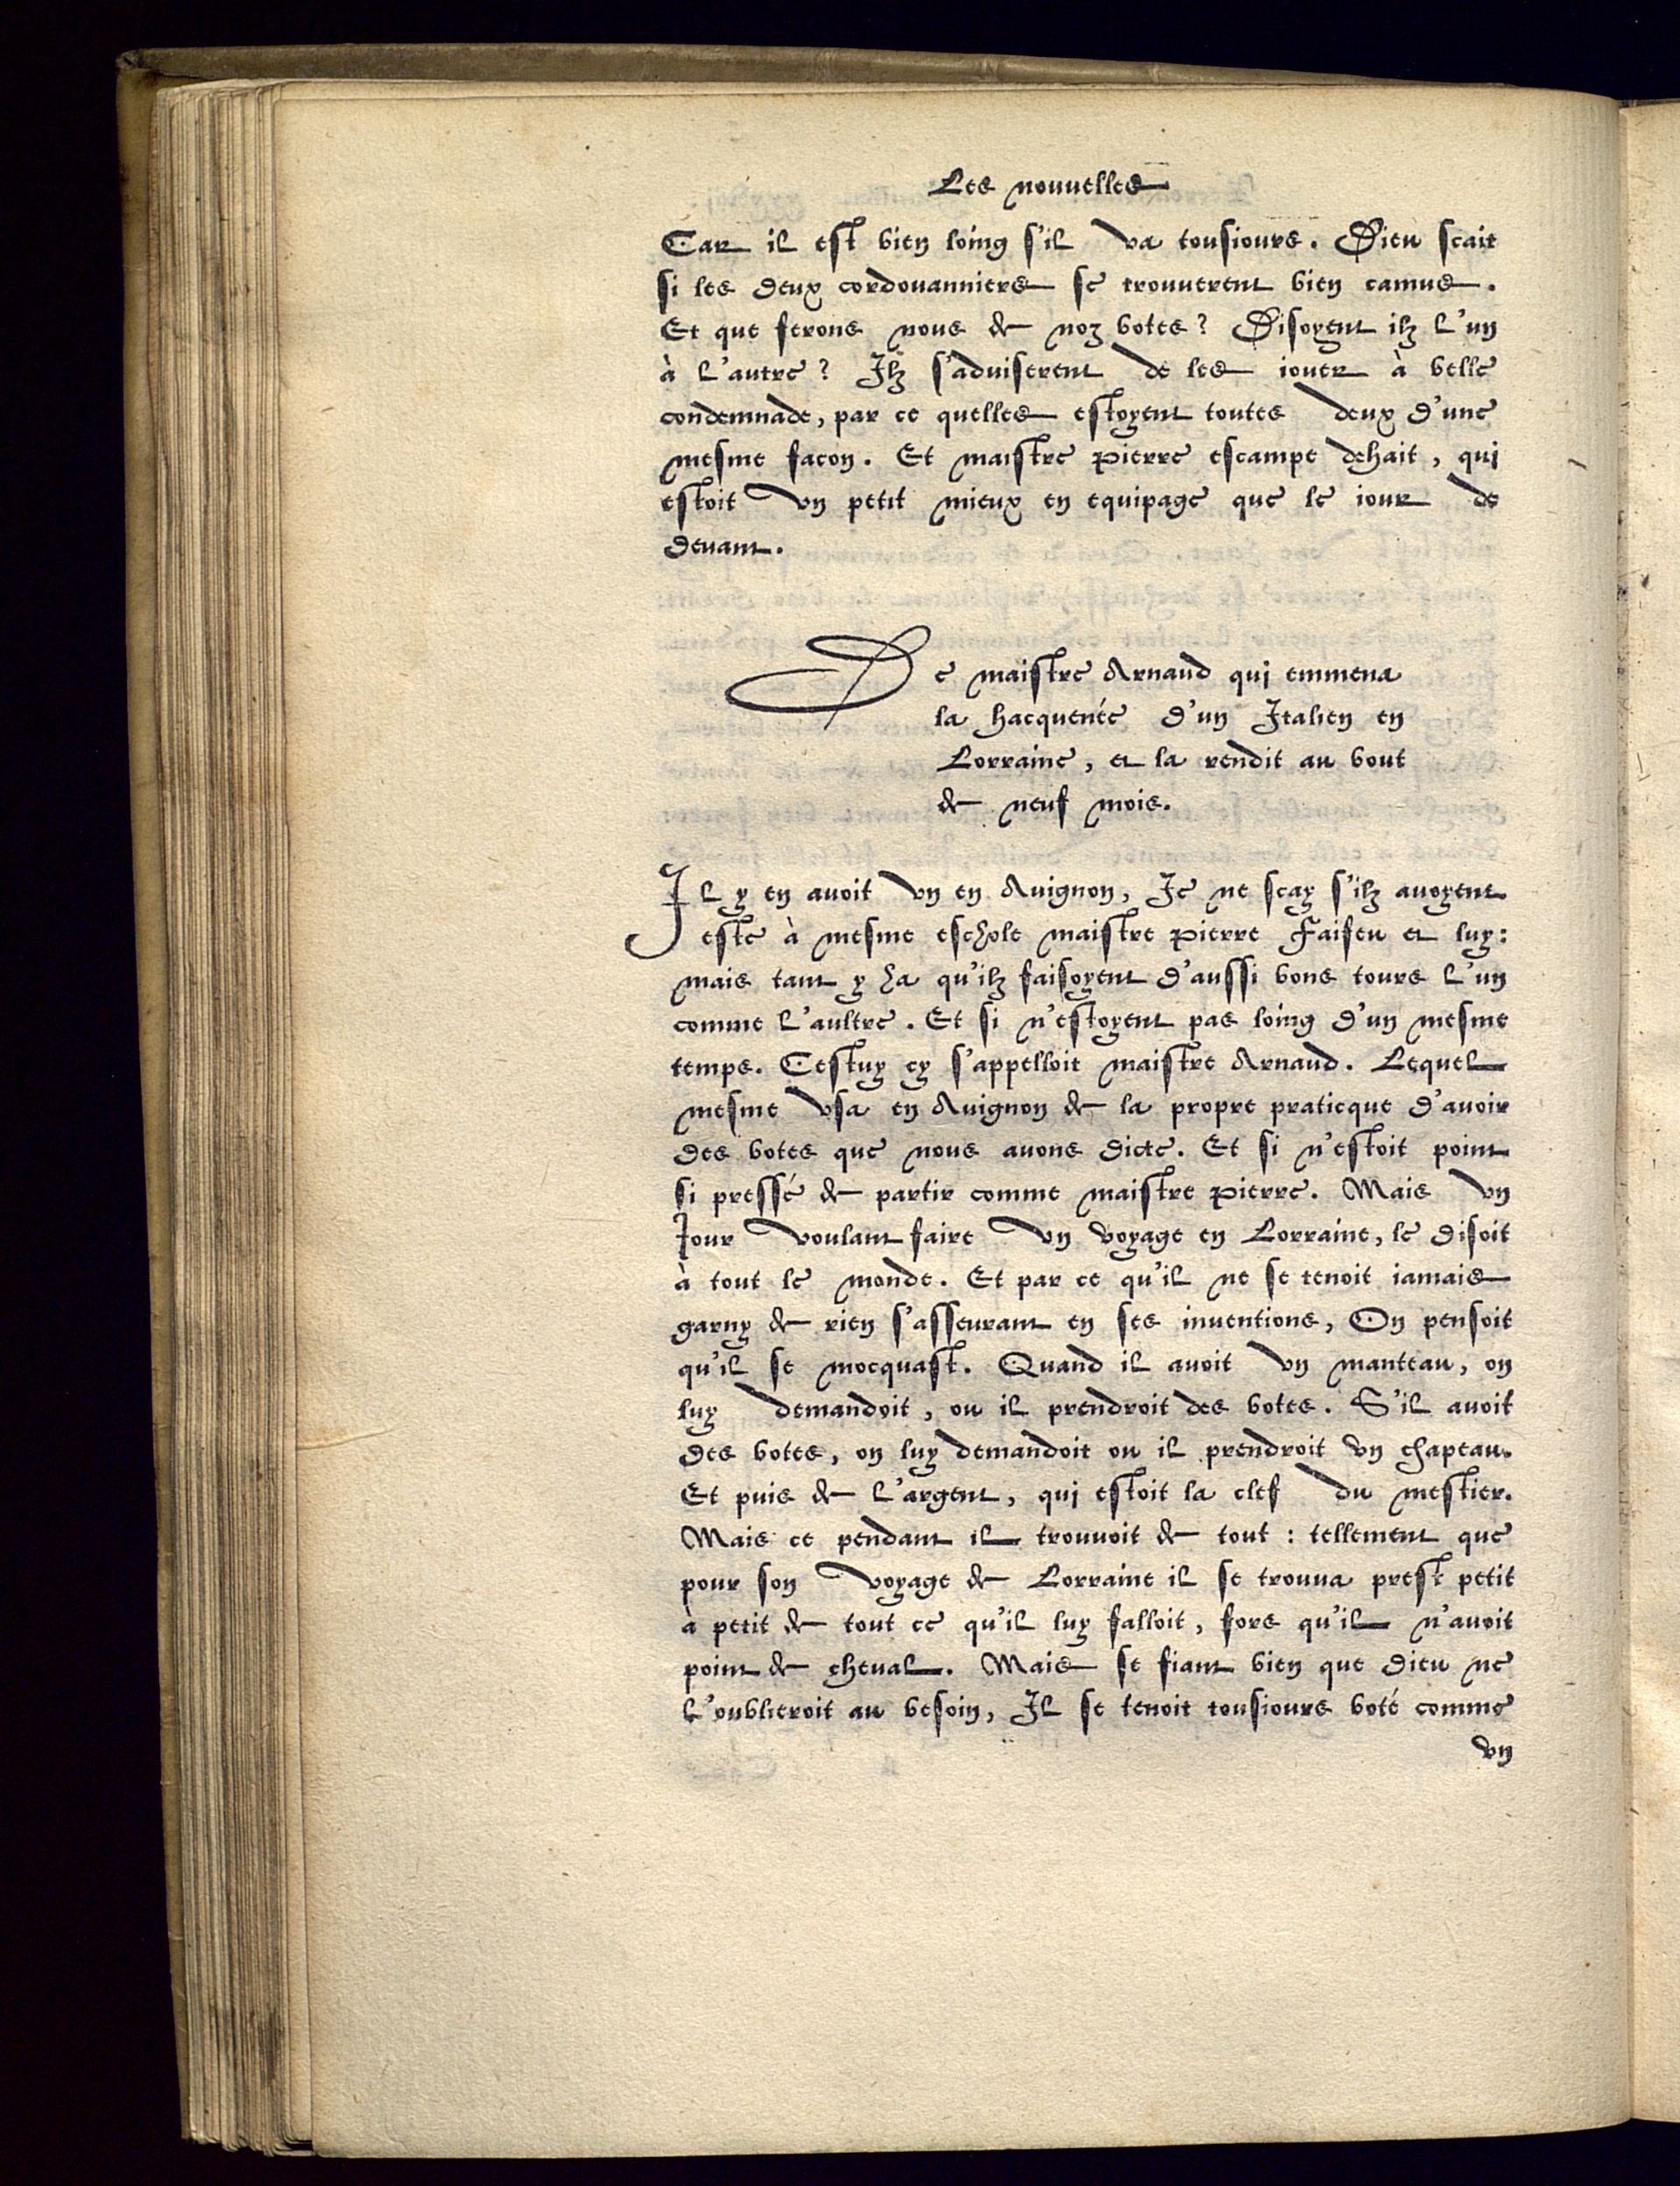 Les nouuelles
Car il est bien loing s'il va tousiours. Dieu scait
si les deux cordouanniers se trouuerent bien camus.
Et que ferons nous de noz botes? Disoyent ilz l'un
à l'autre? Ilz s'aduiserent de les iouer à belle
condemnade, par ce quelles estoyent toutes deux d'une
mesme facon. Et maistre pierre escampe dehait, qui
estoit vn petit mieux en equipage que le iour de
deuant.
De maistre Arnaud qui emmena
la hacquenée d'un Italien en
Lorraine, et la rendit au bout
de neuf mois.
Il y en auoit vn en Auignon, Ie ne scay s'ilz auoyent
este à mesme eschole maistre pierre Faifeu et luy:
mais tant y ha qu'ilz faisoyent d'aussi bons tours l'un
comme l'aultre. Et si n'estoyent pas loing d'un mesme
temps. Cestuy cy s'appelloit maistre Arnaud. Lequel
mesme vsa en Auignon de la propre praticque d'auoir
des botes que nous auons dicte. Et si n'estoit point
si pressé de partir comme maistre pierre. Mais vn
Iour voulant faire vn voyage en Lorraine, le disoit
à tout le monde. Et par ce qu'il ne se tenoit iamais
garny de rien s'asseurant en ses inuentions, On pensoit
qu'il se mocquast. Quand il auoit vn manteau, on
luy demandoit, ou il prendroit des botes. S'il auoit
des botes, on luy demandoit ou il prendroit vn chapeau.
Et puis de l'argent, qui estoit la clef du mestier.
Mais ce pendant il trouuoit de tout : tellement que
pour son voyage de Lorraine il se trouua prest petit
à petit de tout ce qu'il luy falloit, fors qu'il n'auoit
point de cheual. Mais se fiant bien que Dieu ne
l'oublieroit au besoin, Il se tenoit tousiours boté comme
vn